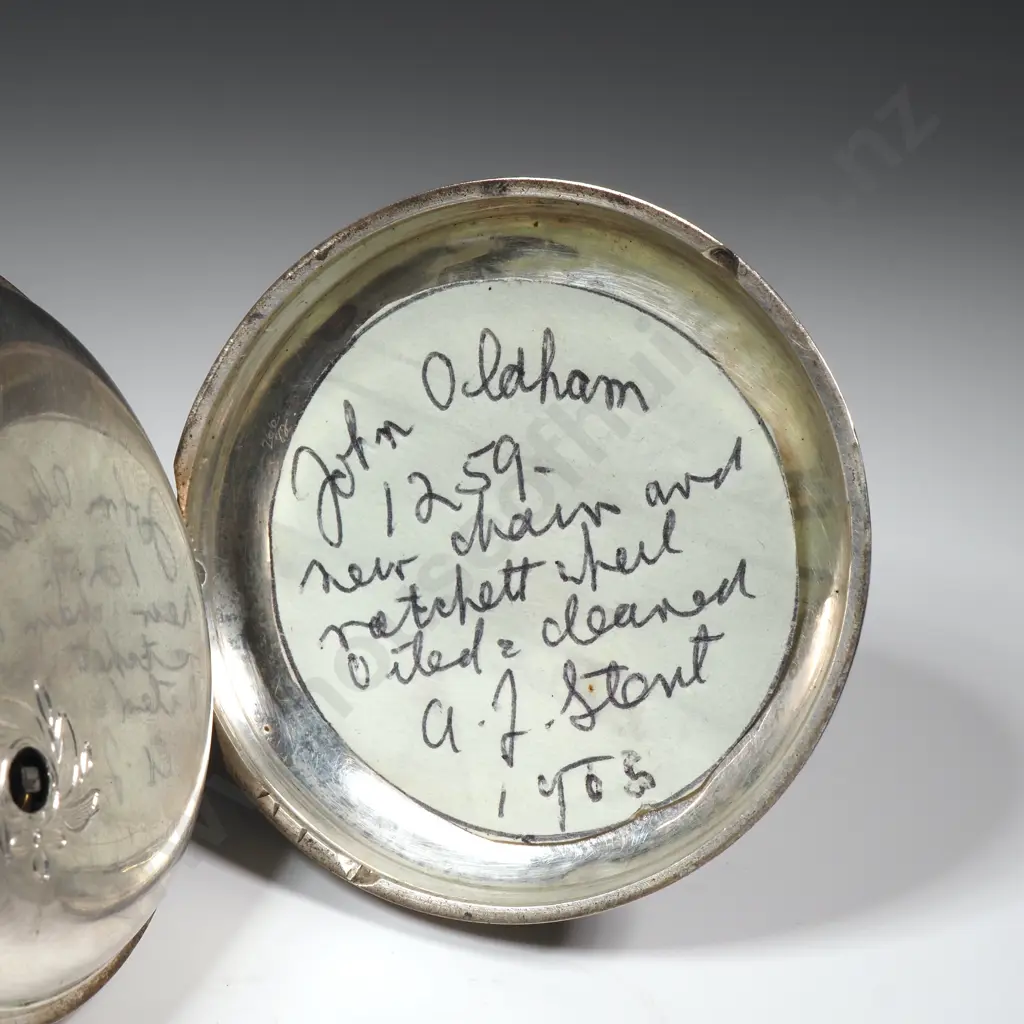 John Oldham
1259-
new chain and
ratchett wheel
oiled & cleaned
A. J. Stent